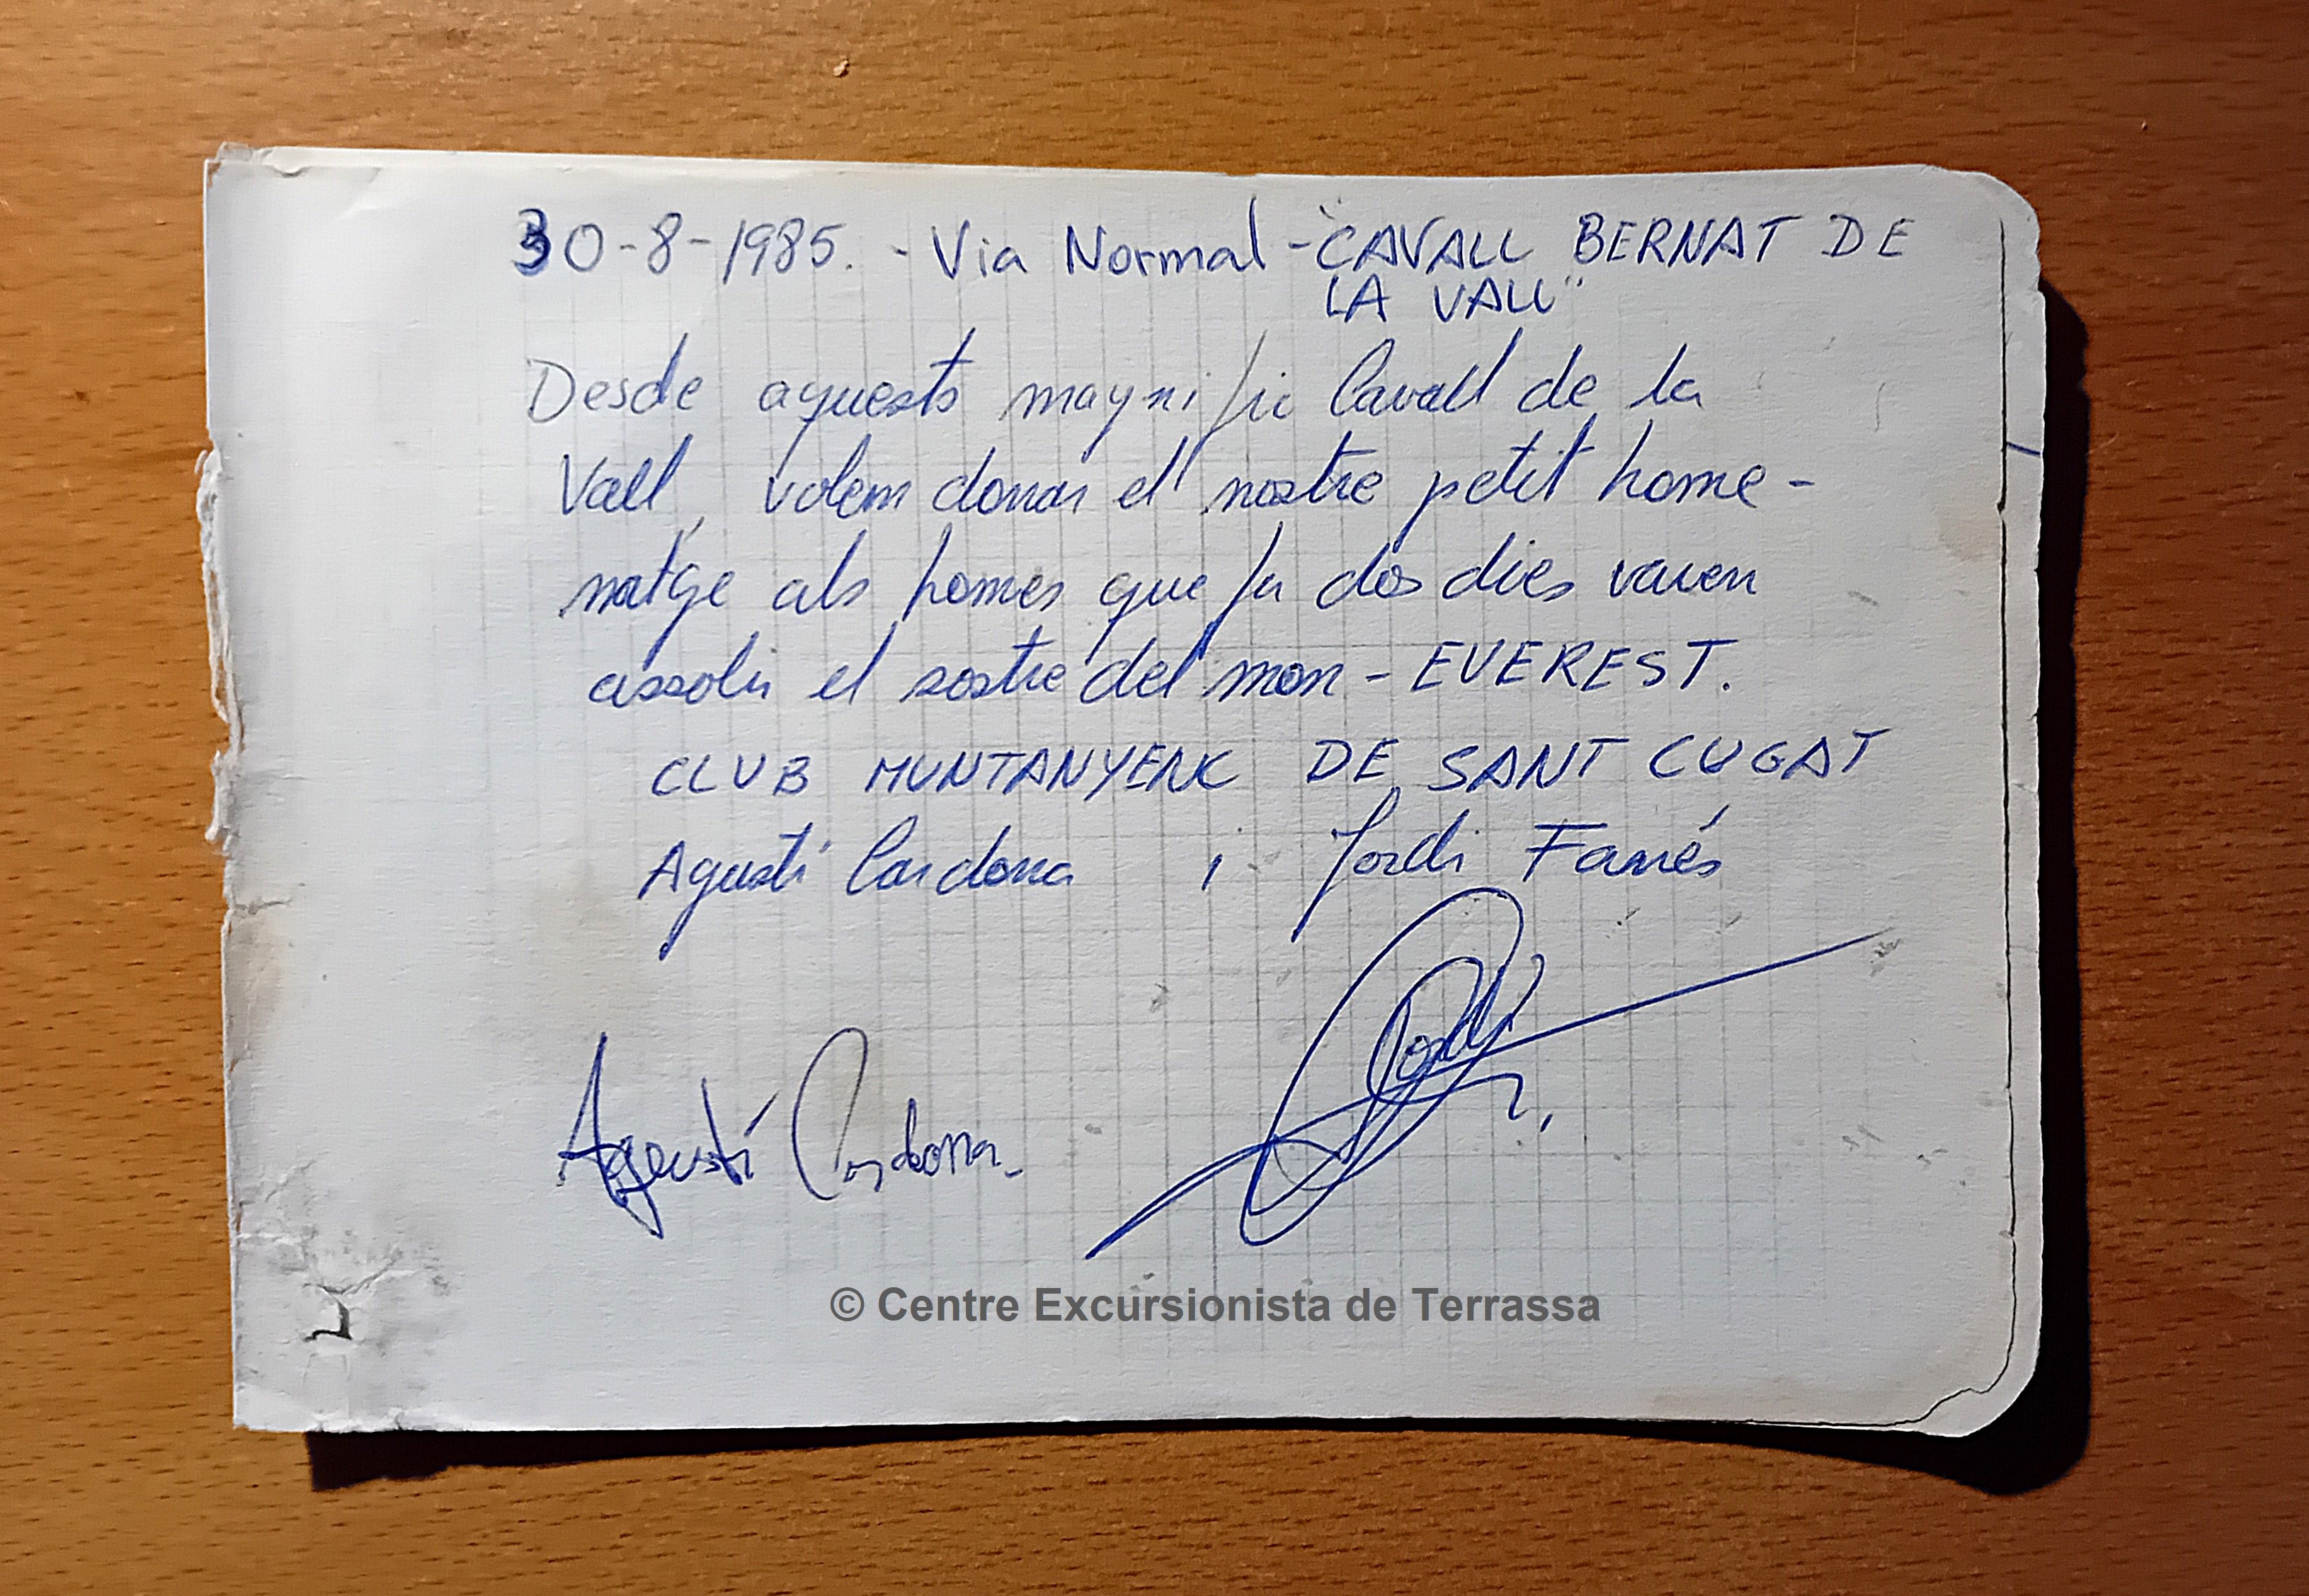 30-8-1985. - Via Normal - "CAVALL BERNAT DE
LA VALL"
Desde aquests magnific Cavall de la
Vall, volem donar el nostre petit home-
natge als homes que fa dos dies varen
assolir el sostre del mon - EVEREST.
CLUB MUNTANYENC DE SANT CUGAT
Agustí Cardona i Jordi Fanés
Agustí Cardona.
Jordi
© Centre Excursionista de Terrassa